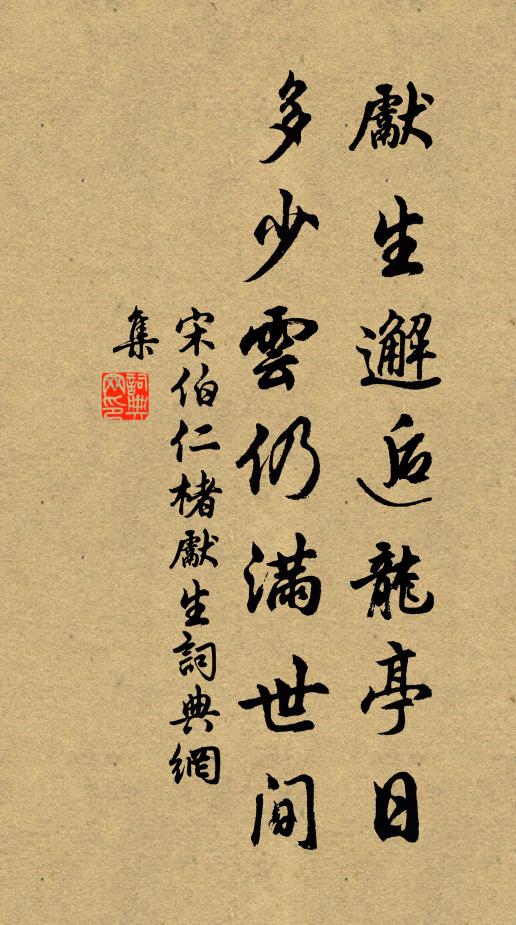 獻生邂逅龍亭日
多少雲仍滿世間
宋伯仁楮獻生詞典網
集
詞典網印